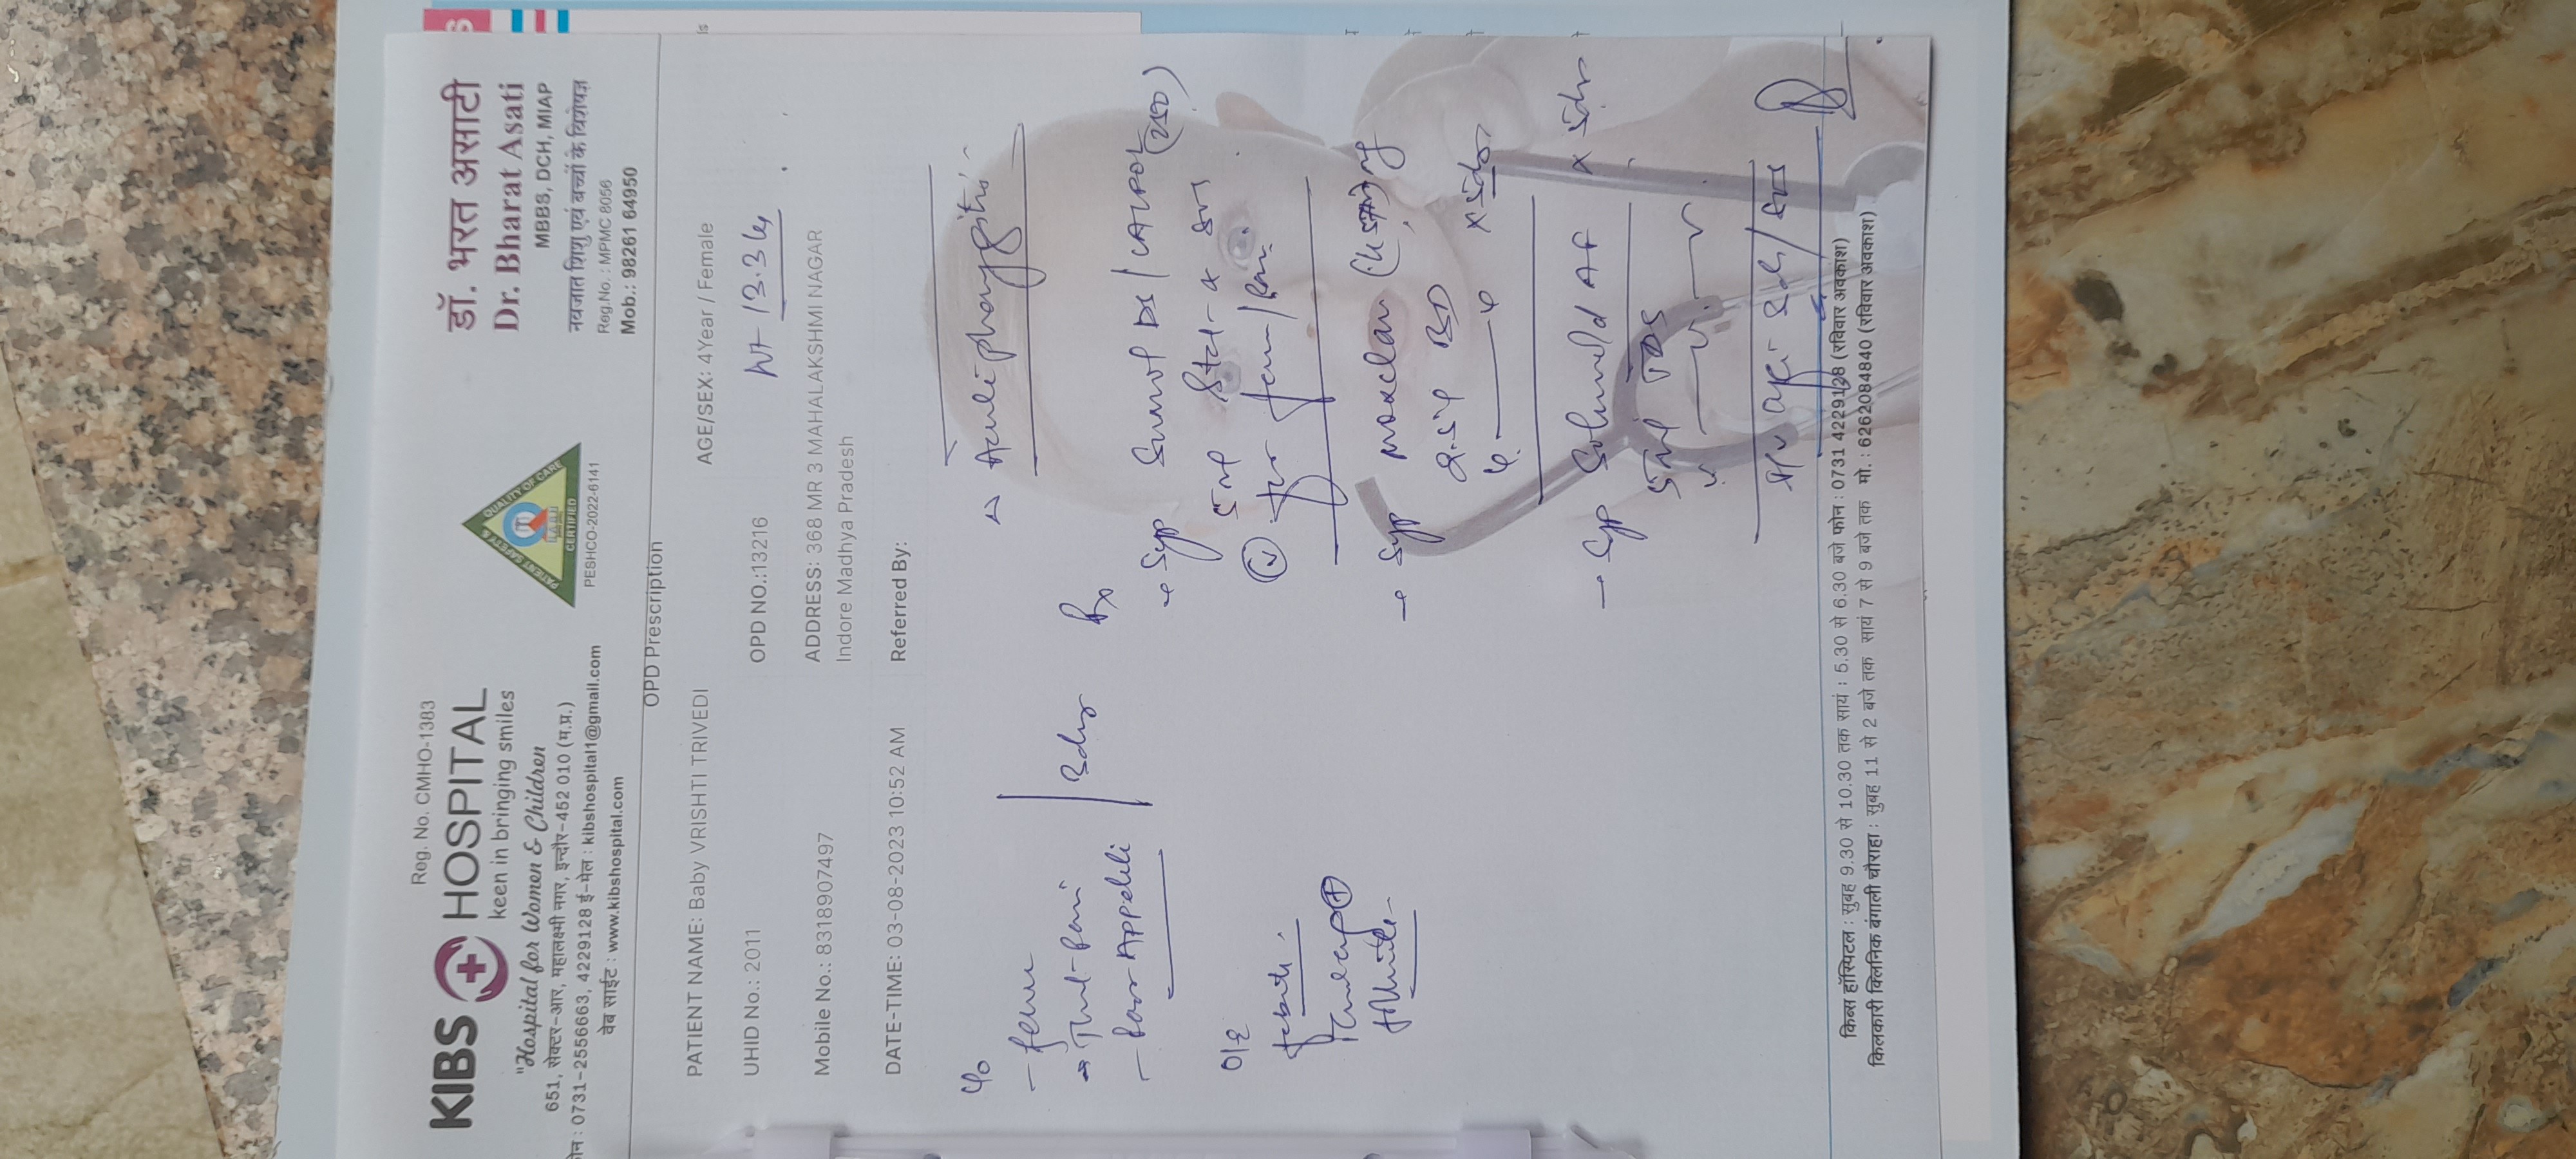 Reg. No. CMHO-1383
KIBS HOSPITAL
keen in bringing smiles
"Hospital for Women & Children
651, सेक्टर-आर, महालक्ष्मी नगर, इन्दौर-452 010 (म.प्र.)
फोन : 0731-2556663, 4229128 ई-मेल : kibshospital1@gmail.com
वेब साईट : www.kibshospital.com
PATIENT SAFETY & QUALITY OF CARE
CERTIFIED
PESHCO-2022-6141
डॉ. भरत असाटी
Dr. Bharat Asati
MBBS, DCH, MIAP
नवजात शिशु एवं बच्चों के विशेषज्ञ
Reg.No. : MPMC 8056
Mob.: 98261 64950
OPD Prescription
PATIENT NAME: Baby VRISHTI TRIVEDI AGE/SEX: 4Year / Female
UHID No.: 2011 OPD NO.:13216 Wt 13.3 kg
Mobile No.: 8318907497 ADDRESS: 368 MR 3 MAHALAKSHMI NAGAR
Indore Madhya Pradesh
DATE-TIME: 03-08-2023 10:52 AM Referred By:
C/o
- fever
Throat-Pain
- Poor Appetite
3days
O/E
febrile
Δ Acute pharyngitis
Rx
Syp Sumol DS / CALPOL (250)
5ml
for fever / Pain
Syp moxclav
BD
x 5days
- Syp Solvin Cold AF
5ml TDS x 5days
किब्स हॉस्पिटल : सुबह 9.30 से 10.30 तक सायं : 5.30 से 6.30 बजे फोन : 0731 4229128 (रविवार अवकाश)
किलकारी क्लिनिक बंगाली चौराहा : सुबह 11 से 2 बजे तक सायं 7 से 9 बजे तक मो. : 6262084840 (रविवार अवकाश)